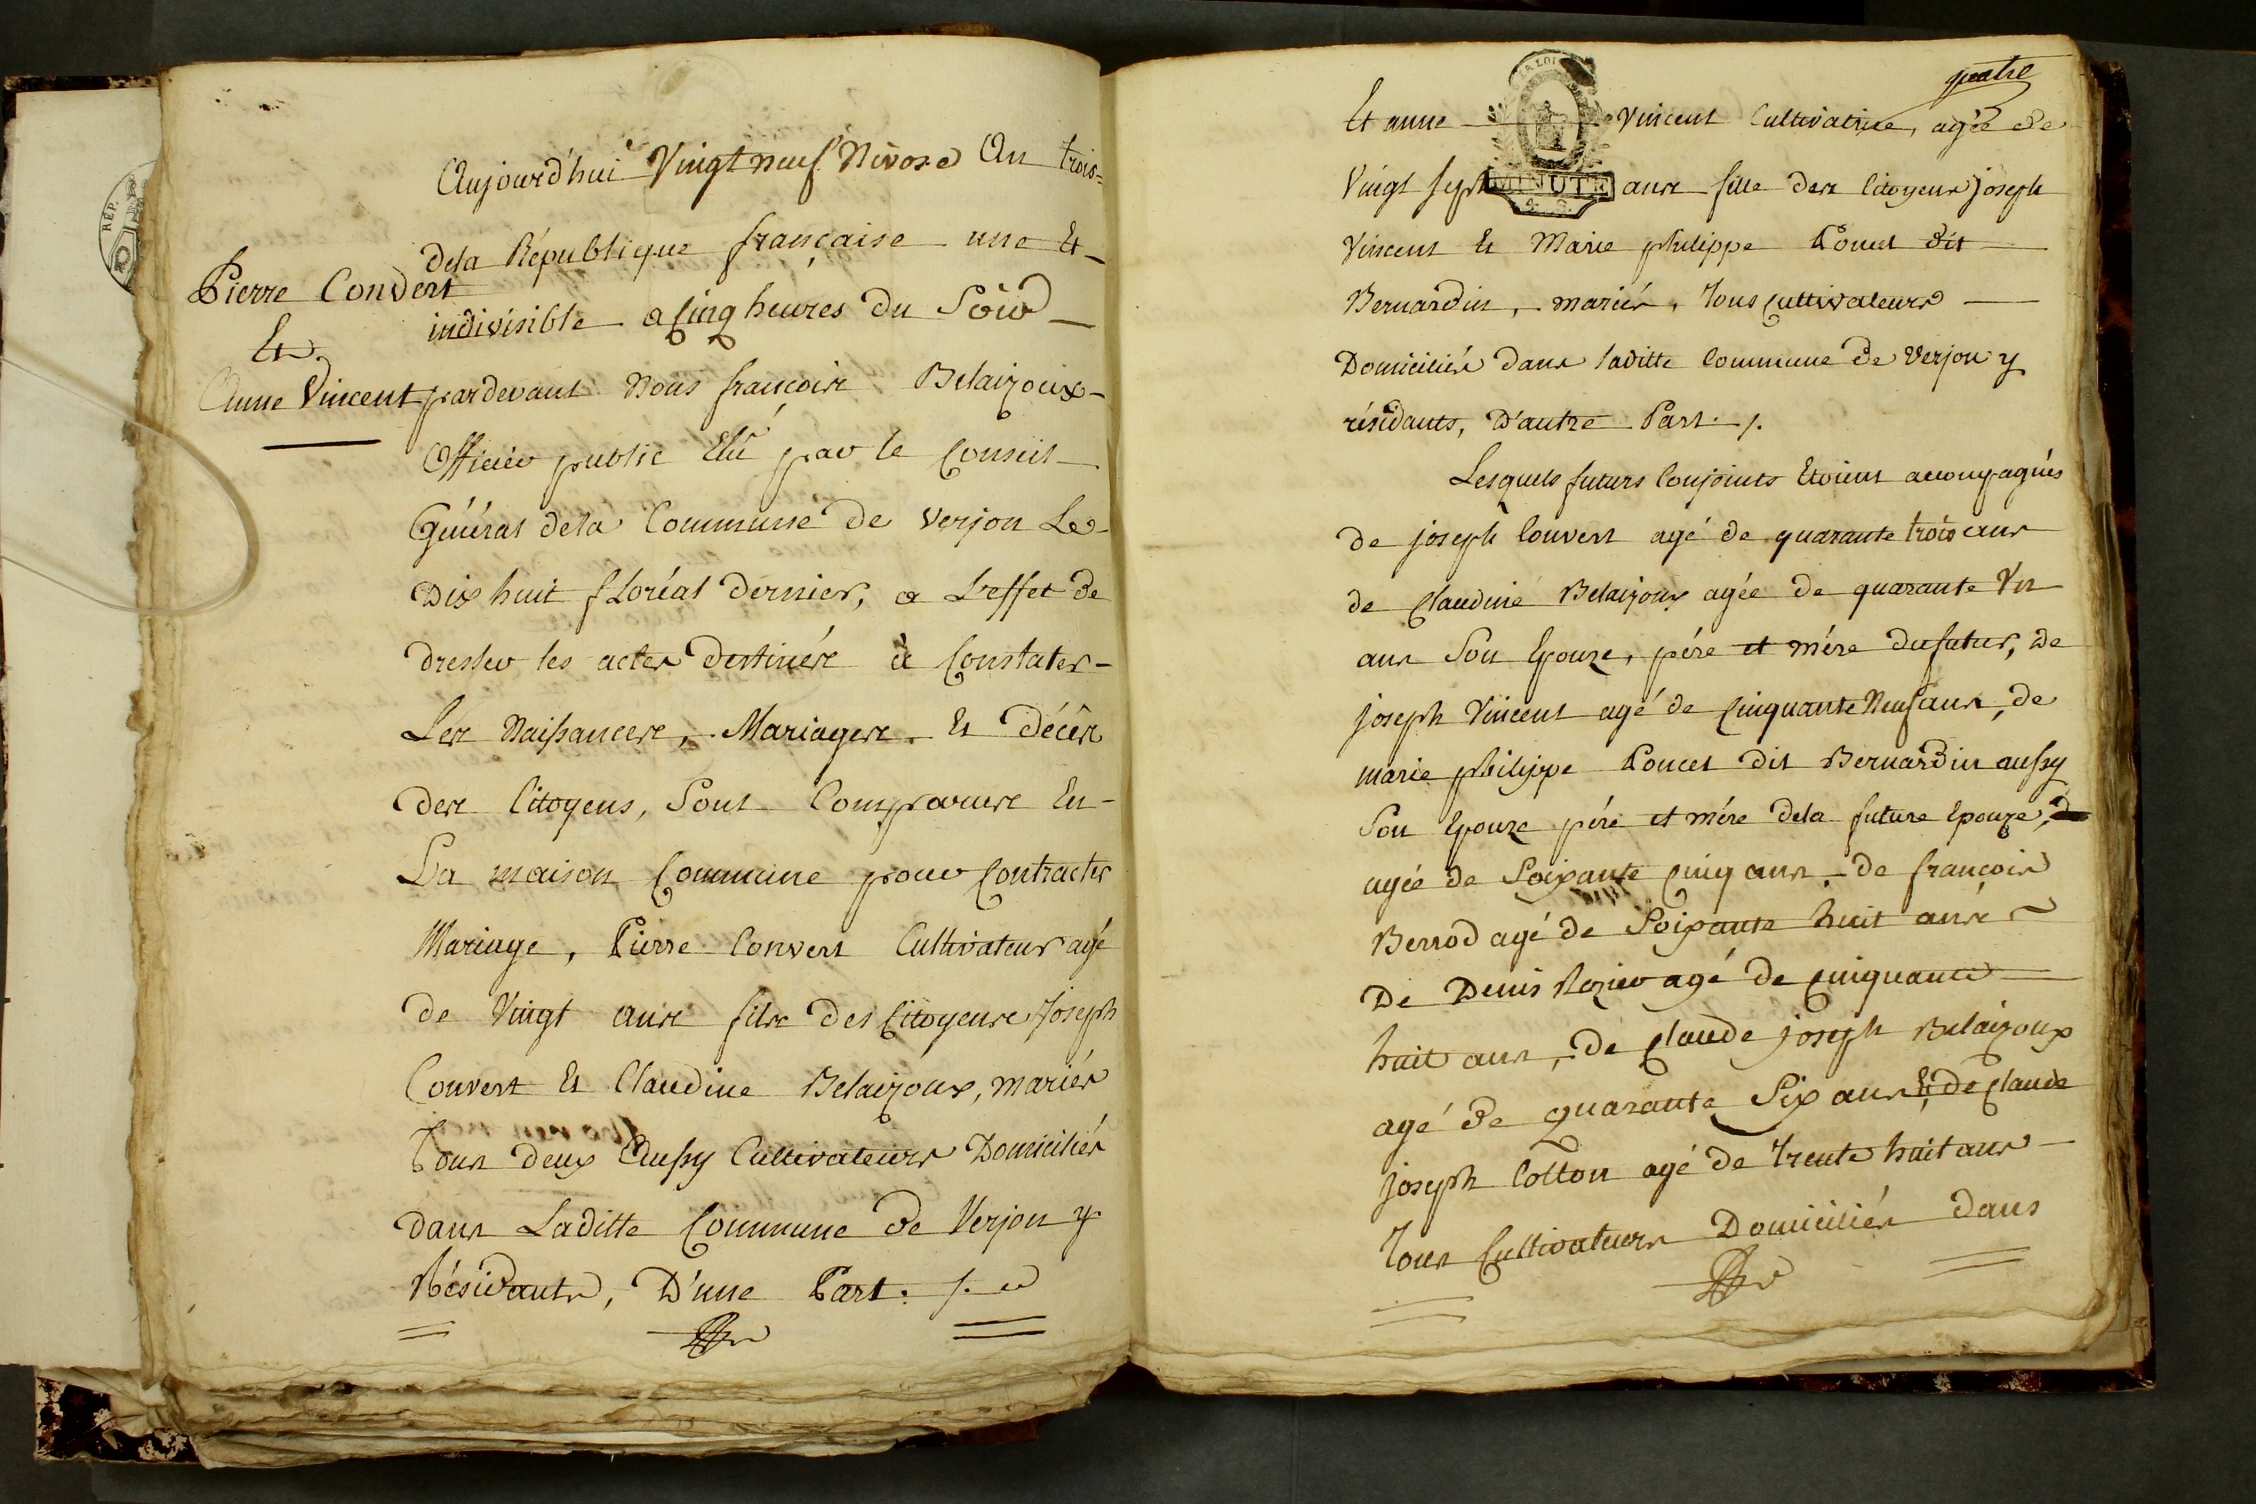 Pierre Convert
Et
Anne Vincent
Aujourd'hui Vingt neuf Nivose An trois=
dela République française une Et
indivisible a Cinq heures du Soir
pardevant Nous françois Belaizoux
Officier public Elû par le Conseil
Général dela Commune de verjon Le
Dix huit floréal dernier, a L'effet de
dresser les actes destinés à Constater
Les Naissances, Mariages Et Décês
des Citoyens, Sont Comparus En
La maison Commune pour Contracter
Mariage, Pierre Convert Cultivateur agé
de Vingt ans fils des Citoyens Joseph
Convert Et Claudine Belaizoux, mariés
Tous deux Aussy Cultivateurs Domiciliés
dans Laditte Commune de Verjon y
Résidants, D'une Part. /.
RÉP.
quatre
LA LOI
MINUTE
Et anne Vincent Cultivatrice, agée de
Vingt sept ans fille des Citoyens joseph
Vincent Et Marie philippe Poncet dit
Bernardin, mariés, Tous Cultivateurs
Domiciliés dans laditte Commune de Verjon y
résidants, D'autre Part. /.
Lesquels futurs Conjoints Etoient accompagnés
de joseph Convert agé de quarante trois ans
de Claudine Belaizoux agée de quarante Un
ans Son Epouze, pére et mére du futur, De
joseph Vincent agé de Cinquante Neuf ans, de
marie philippe Poncet dit Bernardin aussy
Son Epouze pére et mére dela future Epouze,
agée de Soixante Cinq ans, de françois
Berrod agé de Soixante huit ans
De Denis Rozier agé de Cinquante
huit ans, De Claude joseph Belaizoux
agé de quarante Six ans, Et de Claude
joseph Cotton agé de Trente huit ans
Tous Cultivateurs Domiciliés dans